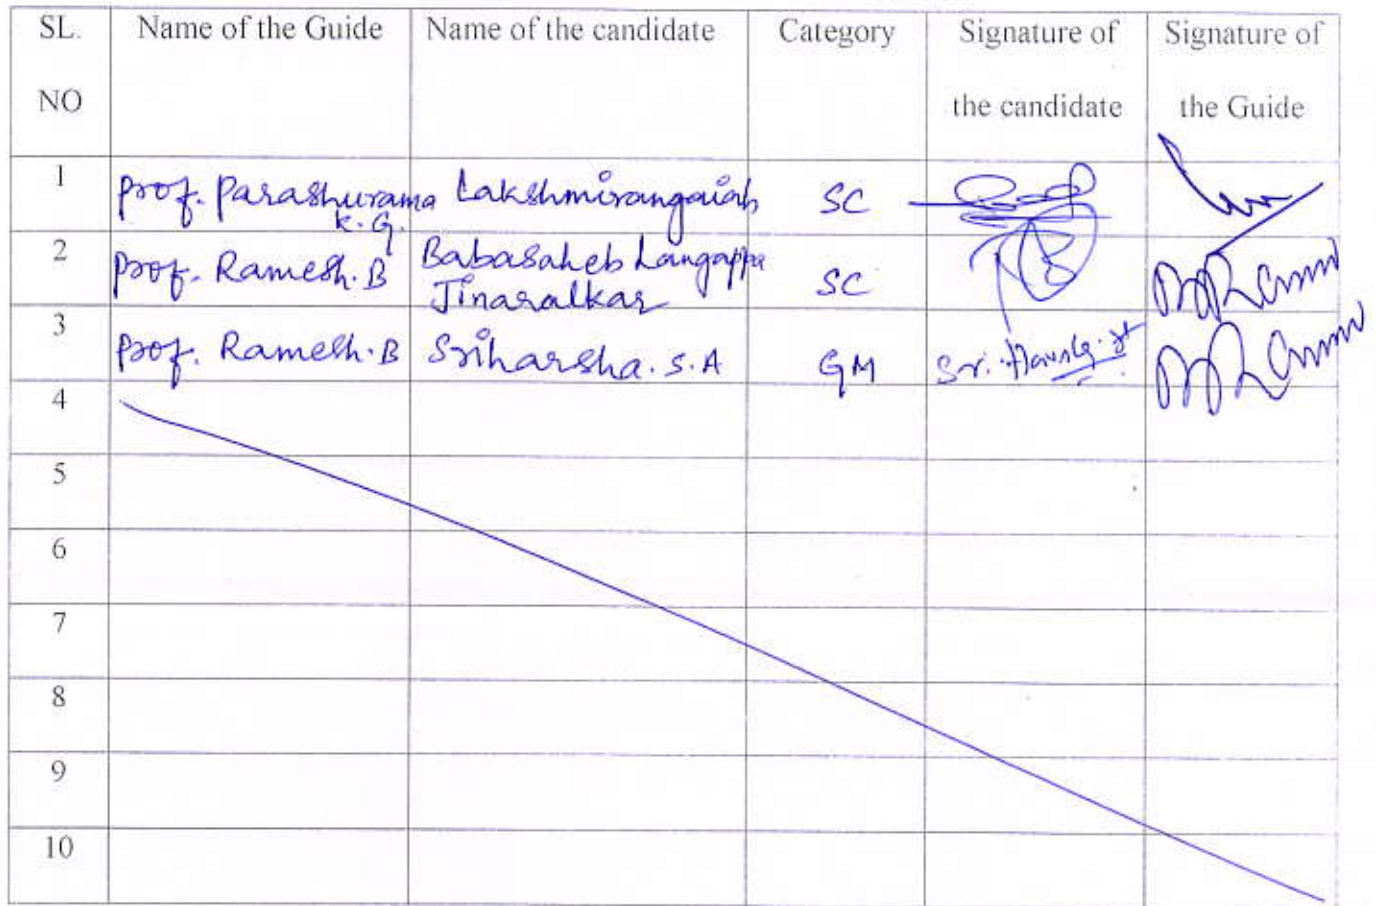 SL. NO Name of the Guide Name of the candidate Category Signature of the candidate Signature of the Guide
1 Prof. Parashurama K.G. Lakshmirangaiah SC
2 Prof. Ramesh.B Babasaheb Langappa Jinaralkar SC
3 Prof. Ramesh.B Sriharsha.S.A GM
4
5
6
7
8
9
10